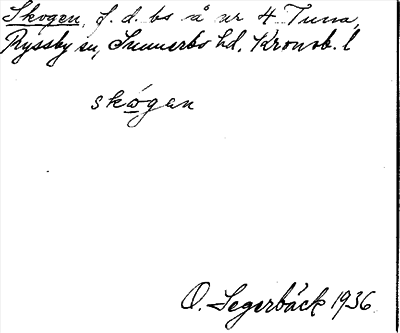 Skogen, f. d. bs å nr 4 Tuna,
Ryssby sn, Sunnerbo hd, Kronob. l
skógan
O. Segerbäck 1936